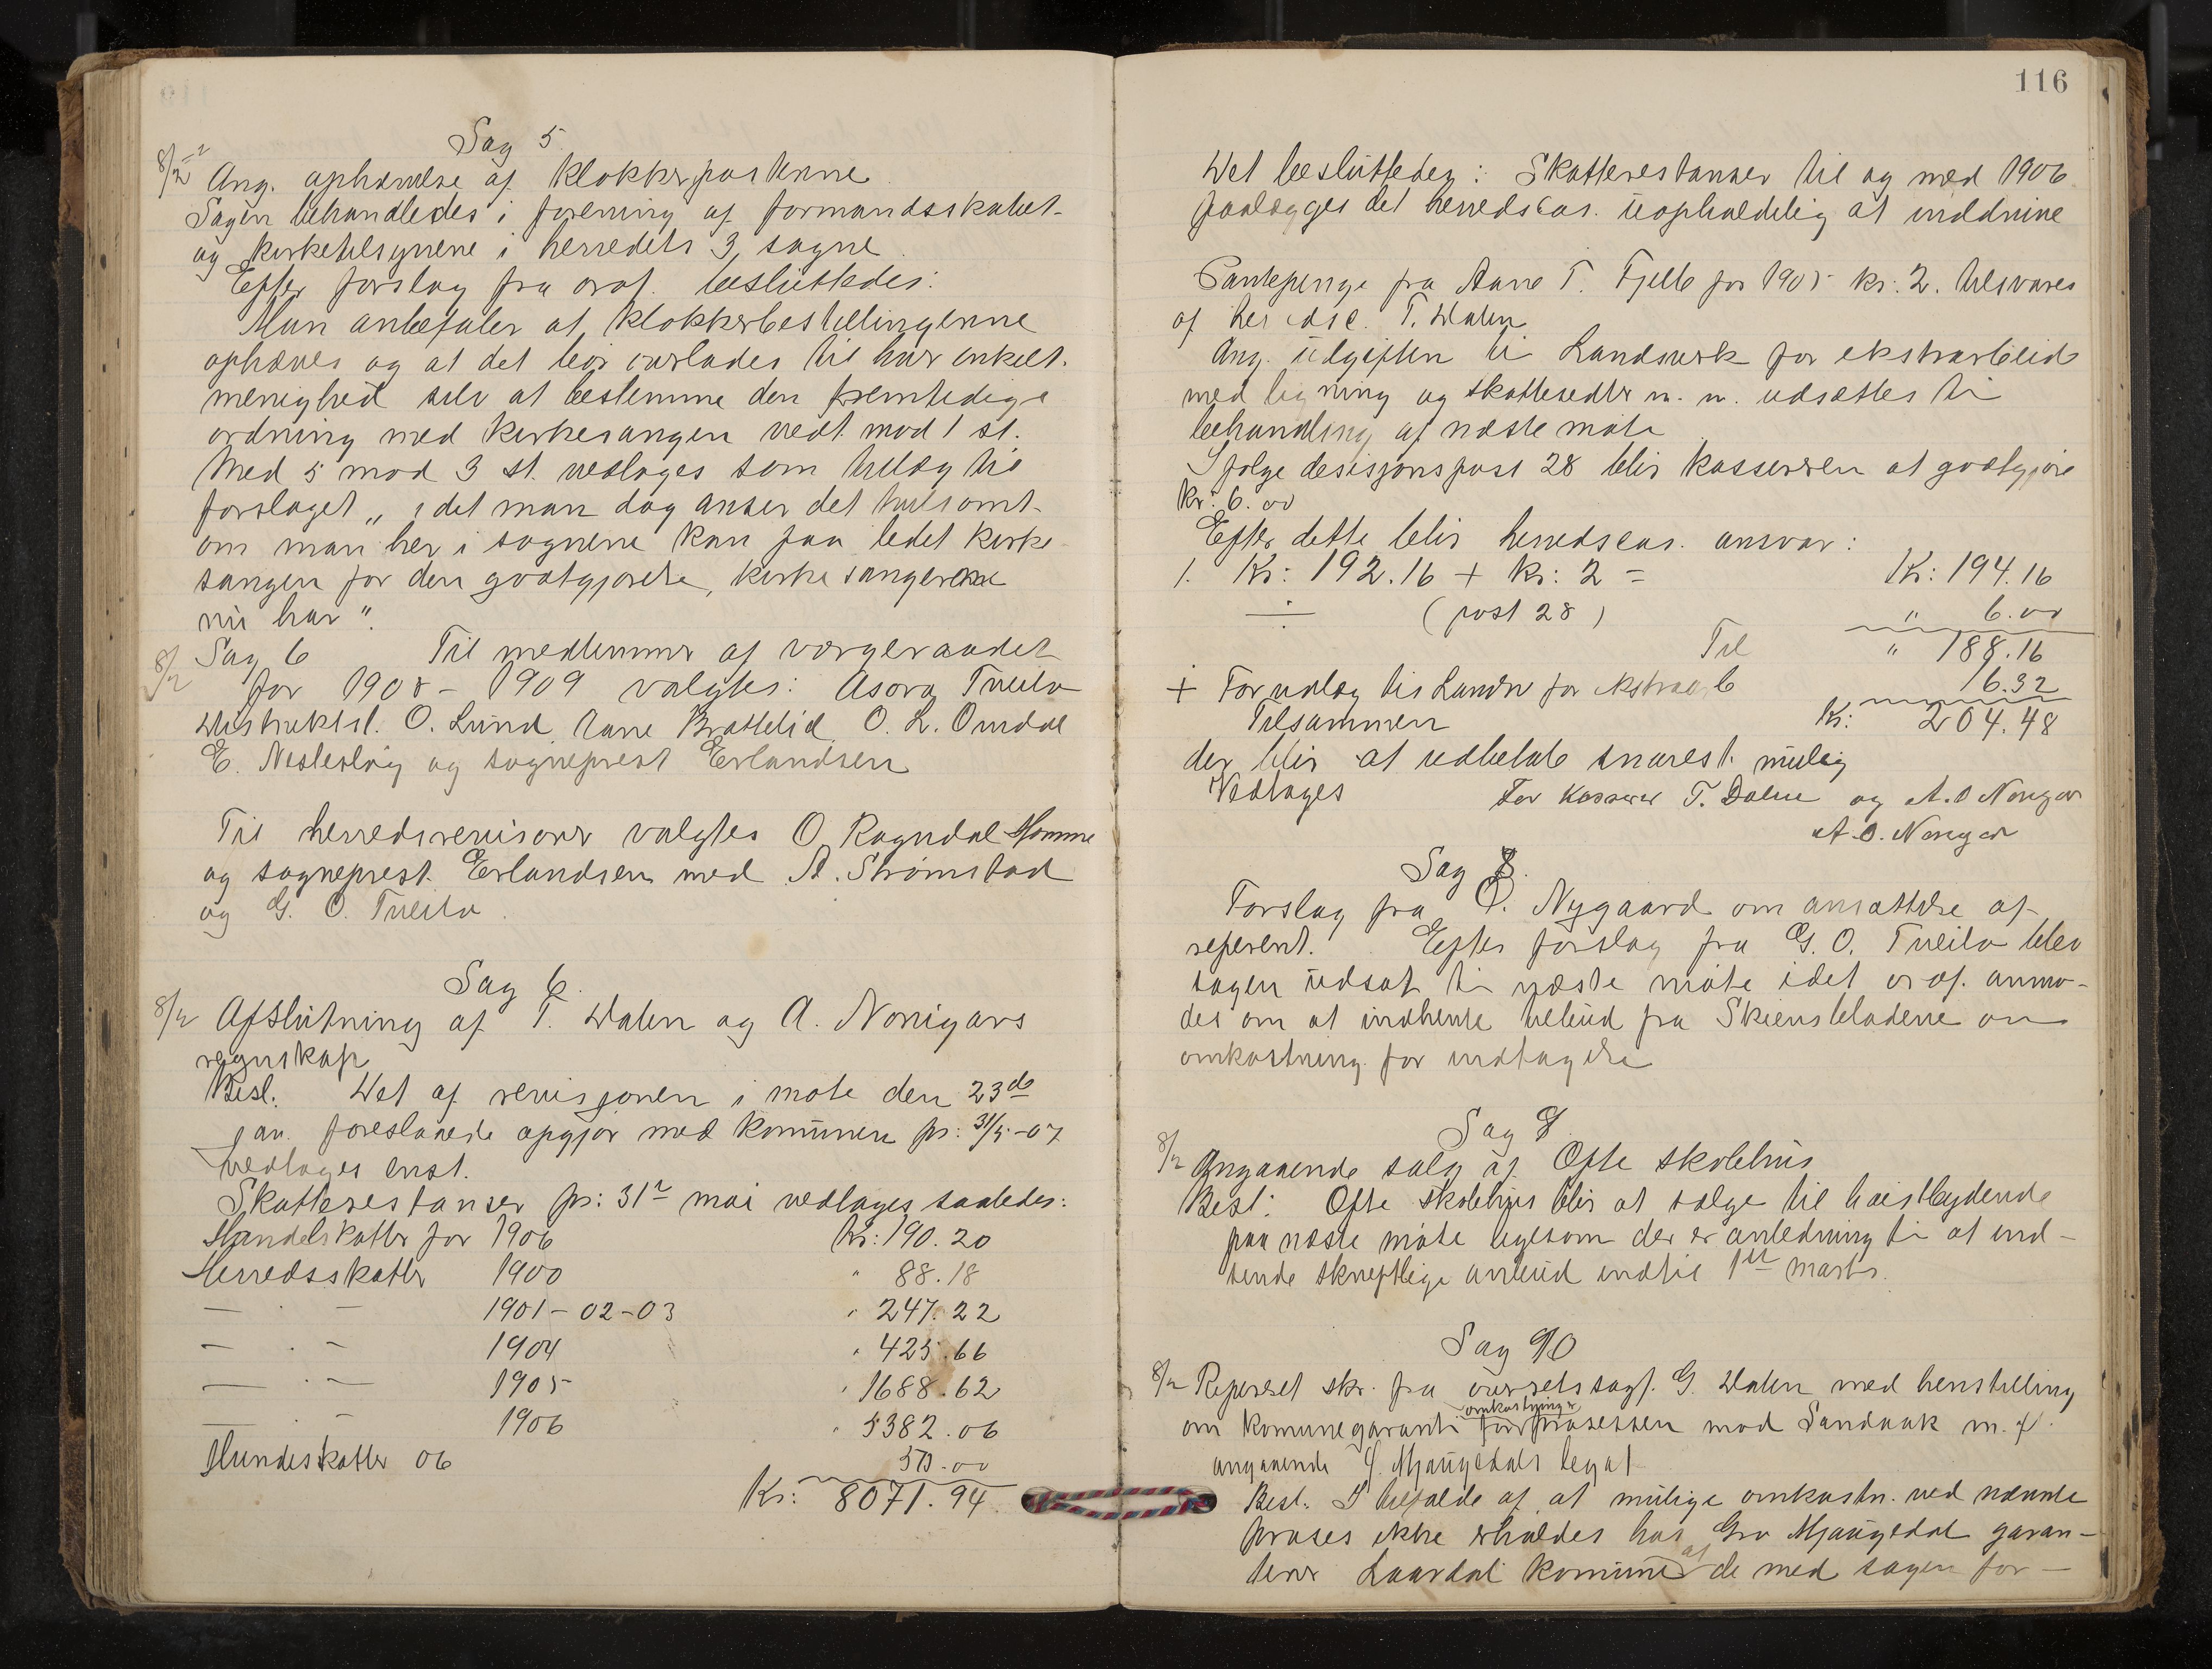 Sag 5.
8/2 Ang. ophævelse af klokkerposterne
Sagen behandledes i forening af formandsskabet
og kirketilsynene i herredets 3 sogne
Efter forslag fra ordf. besluttedes:
Man anbefaler at klokkerbestillingerne
ophæves og at det bør overlades til hver enkelt
menighed selv at bestemme den fremtidige
ordning med kirkesangen vedt. mod 1 st.
Med 5 mod 3 st. vedtoges som tillæg til
forslaget „idet man dog anser det tvilsomt
om man her i sognene kan faa ledet kirke
sangen for den godtgjørelse, kirkesangerne
nu har".
8/2 Sag 6 Til medlemmer af værgeraadet
for 1908 - 1909 valgtes: Asora Tveito
Distriktsl. O. Lund, Aane Brattelid, O. L. Omdal
E. Nesteslog og sogneprest Erlandsen
Til herredsrevisorer valgtes O. Ragndal Homme
og sogneprest Erlandsen med A. Strømstad
og G. O. Tveito.
Sag 6.
8/2 Afslutning af T. Dalen og A. Norigars
regnskap
Besl. Det af revisjonen i møte den 23de
jan. foreslaaede opgjør med kommunen pr: 31/5-07
vedtages enst.
Skatterestanser pr: 31te mai vedtages saaledes:
Handelskatter for 1906 Kr: 190.20
Herredsskatter 1900 " 88.18
— " — 1901-02-03 " 247.22
— " — 1904 " 425.66
— " — 1905 " 1688.62
— " — 1906 " 5382.06
Hundeskatter 06 50.00
Kr: 8071.94
116
Det besluttedes: Skatterestanser til og med 1906
paalægges det herredskas. uopholdelig at inddrive
Pantepenge fra Aane T. Fjelle for 1905 kr: 2. tilsvares
af herredsk. T. Dalen
Ang. udgiften ti Landsverk for ekstraarbeid
med ligning og skattesedler m. m. udsættes ti
behandling af næste møte
I følge desisjonspost 28 blir kassereren at godtgjøre
kr: 6.00
Efter dette blir herredskas. ansvar:
1. Kr: 192.16 + kr: 2 = Kr: 194.16
÷ (post 28) " 6.00
Til " 188.16
+ For udlæg til Landsv for ekstraarb 16.32
Tilsammen Kr: 204.48
der blir at udbetale snarest mulig
Vedtages For Kasserer T. Dalen og A. O Norigar
A. O. Norigar
Sag 8.
Forslag fra O. Nygaard om ansættelse af
referent. Efter forslag fra G. O. Tveito blev
sagen udsat ti næste møte idet ordf. anmo-
des om at indhente tilbud fra Skiensbladene om
omkostning for indtagelse
Sag 9
8/2 Angaaende salg af Ofte skolehus
Besl: Ofte skolehus blir at sælge til høistbydende
paa næste møte ligesom der er anledning ti at ind-
sende skriftlige anbud indtil 1ste marts.
Sag 10
8/2 Refereret skr. fra overretssagf. G. Dalen med henstilling
om komunegaranti for omkostninger prosessen mod Sandaak m. fl.
angaaende G. Mjaugedals legat
Besl. I tilfælde af at mulige omkostn. ved nævnte
proses ikke erholdes hos Gro Mjaugedal garan-
terer Laardal komune af de med sagen for-